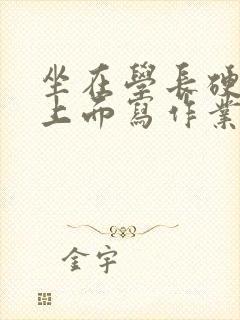 坐在學長硬
上而寫作業
金宇